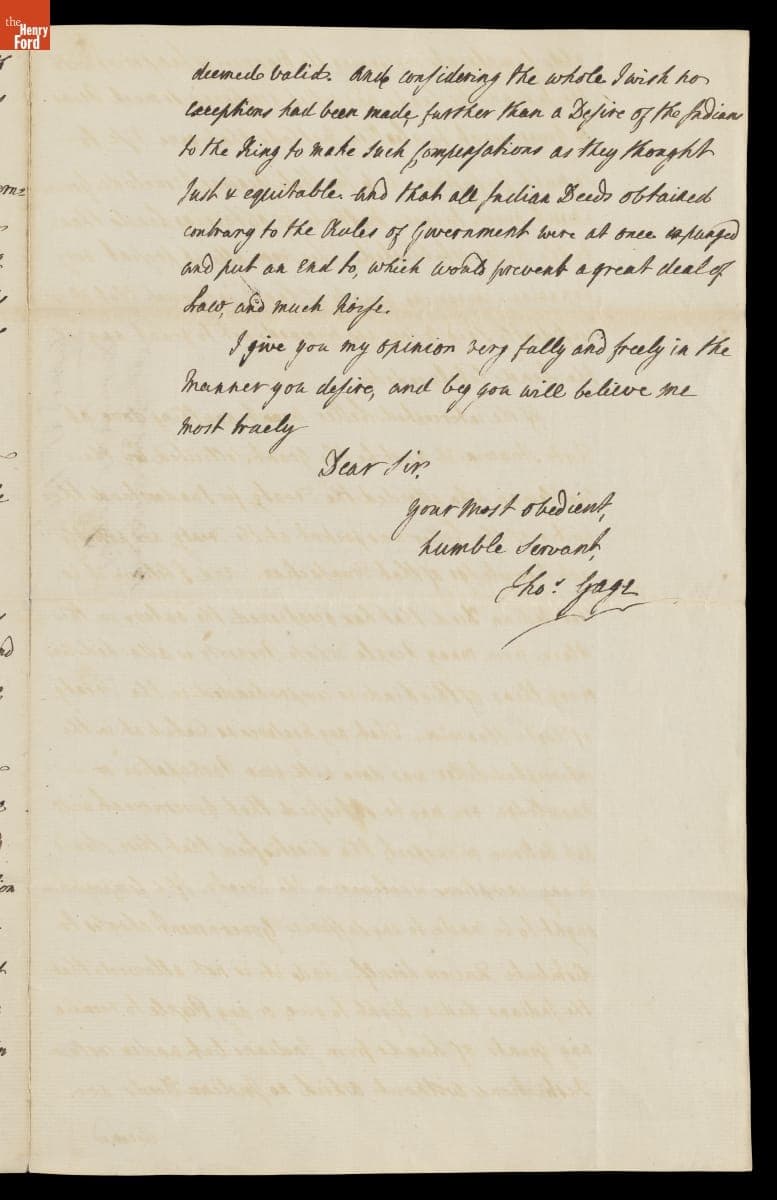 the
Henry
Ford
deemed valid. And considering the whole I wish no
exceptions had been made, further than a Desire of the Indians
to the King to make such Compensations as they thought
Just & equitable. and that all Indian Deeds obtained
contrary to the Rules of Government were at once expunged
and put an end to, which would prevent a great deal of
Law, and much Noise.
I give you my opinion very fully and freely in the
Manner you desire, and beg you will believe me
most truely
Dear Sir,
your most obedient,
humble Servant,
Tho.s Gage